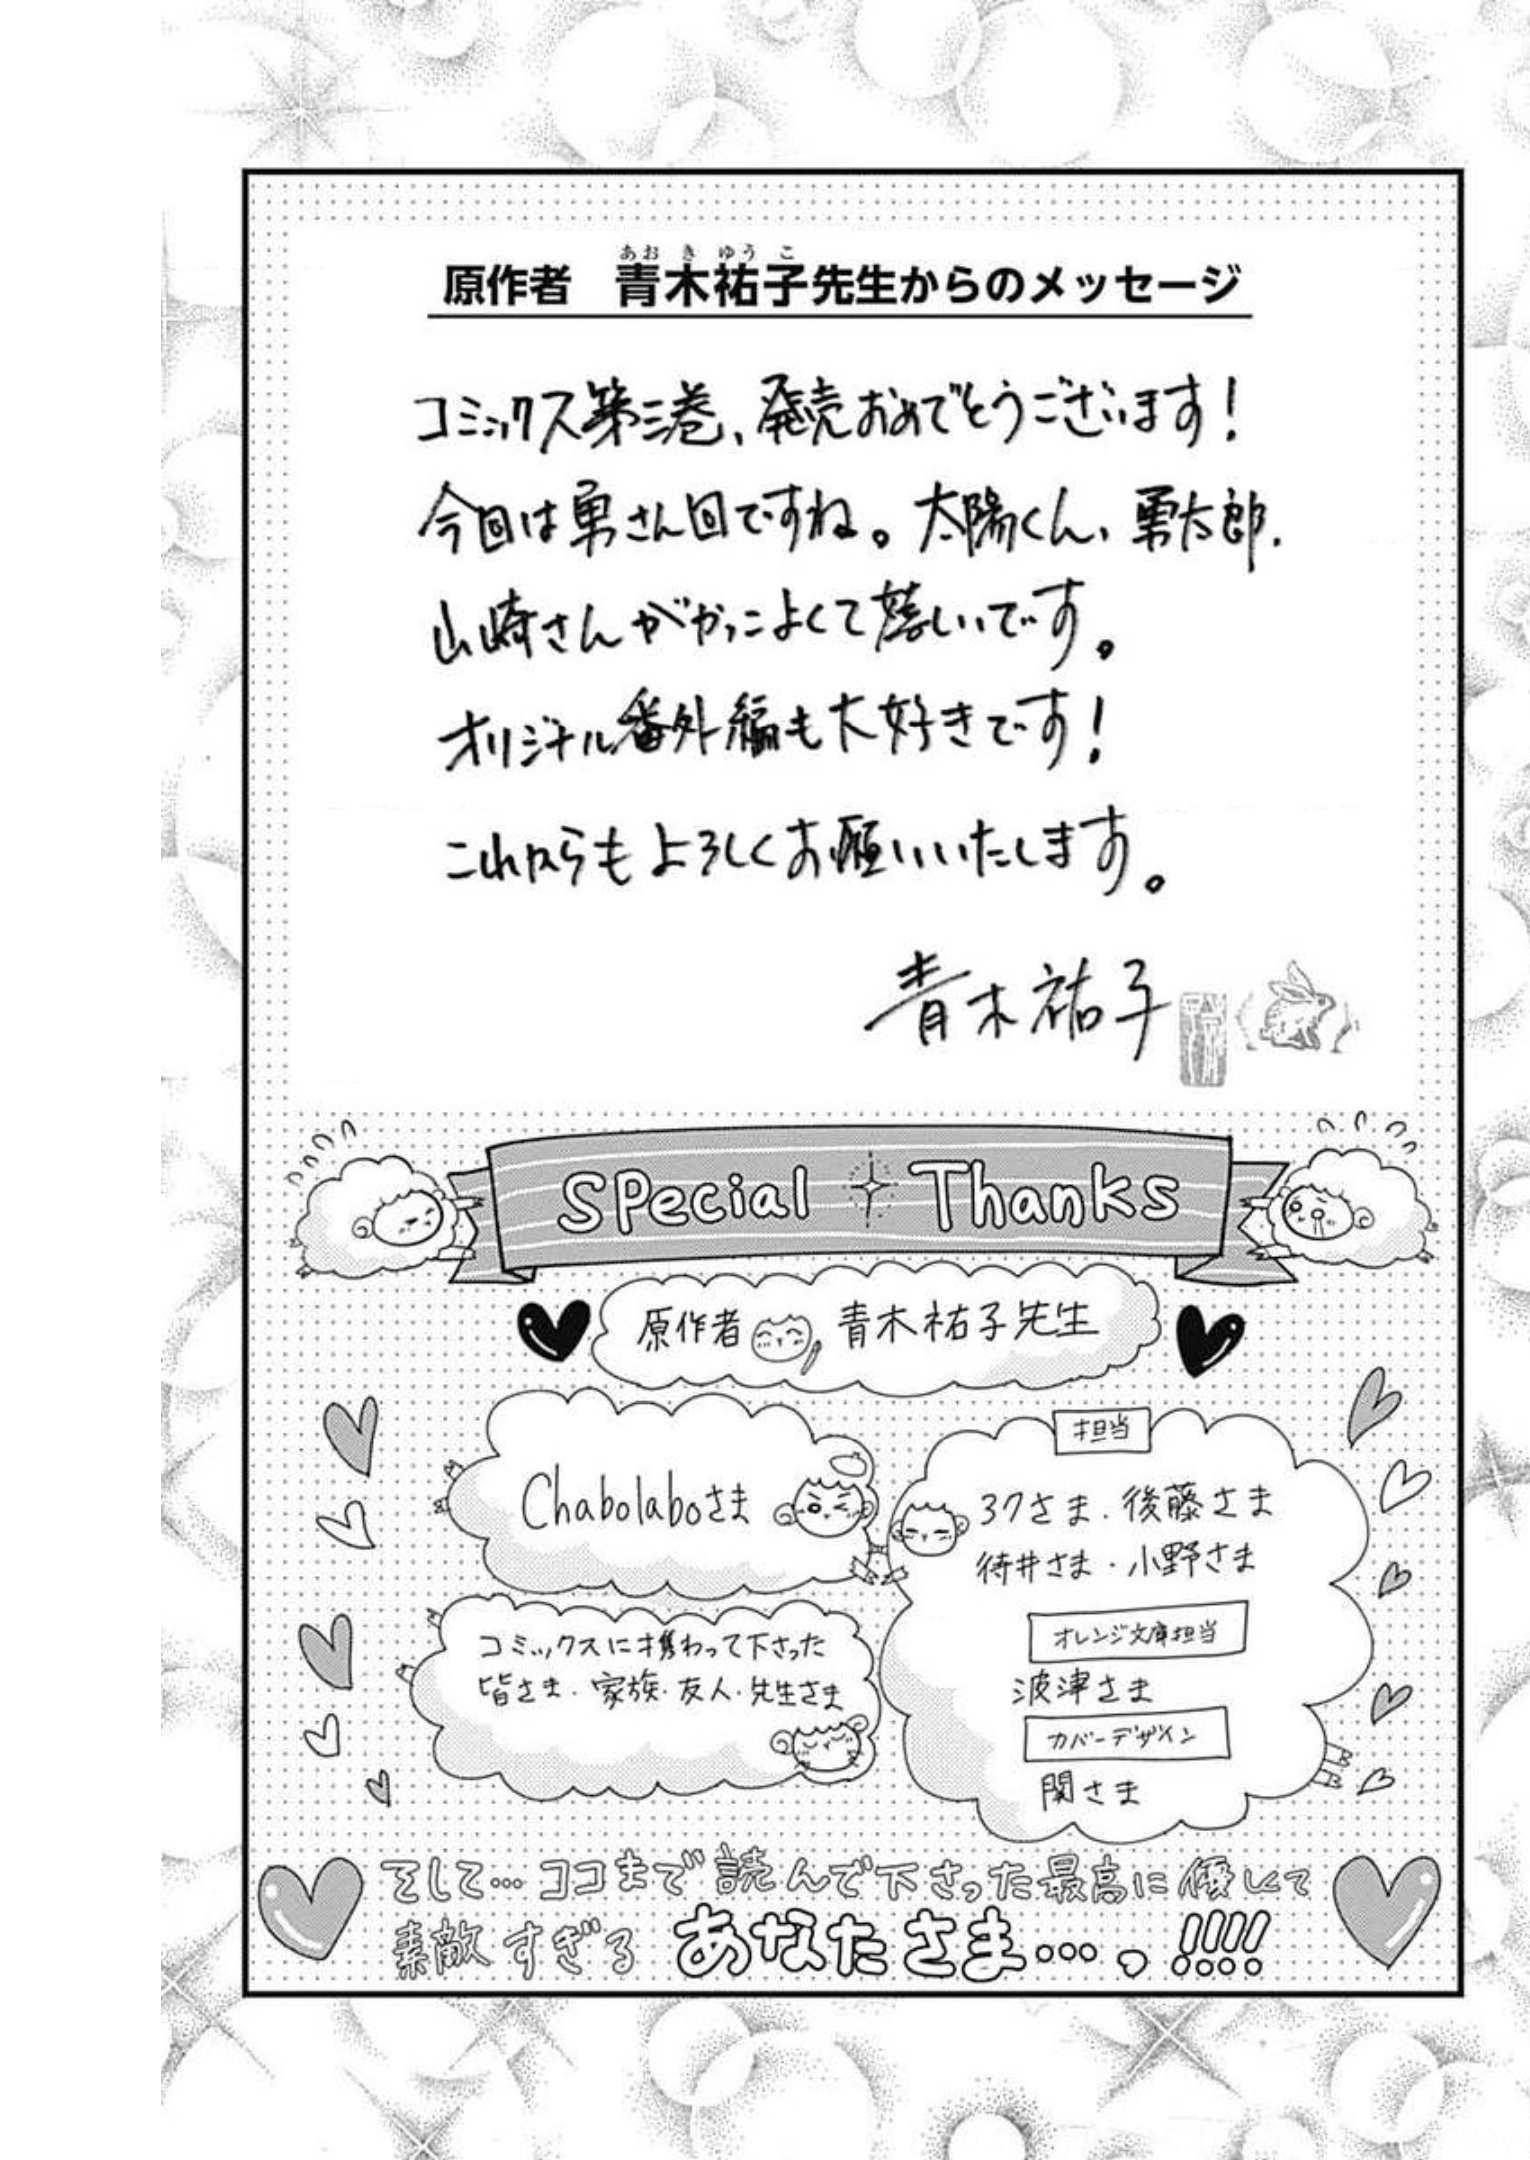 あおきゆうこ
原作者 青木祐子先生からのメッセージ
コミックス第三巻、発売おめでとうございます!
今回は勇さん回ですね。太陽くん、勇太郎、
山崎さんがかっこよくて嬉しいです。
オリジナル番外編も大好きです!
これからもよろしくお願いいたします。
青木祐子
Special Thanks
原作者 青木祐子先生
Chabolaboさま
コミックスに携わって下さった
皆さま・家族・友人・先生さま
担当
37さま・後藤さま
待井さま・小野さま
オレンジ文庫担当
波津さま
カバーデザイン
関さま
そして…ココまで読んで下さった最高に優しくて
素敵すぎるあなたさま…っ!!!!